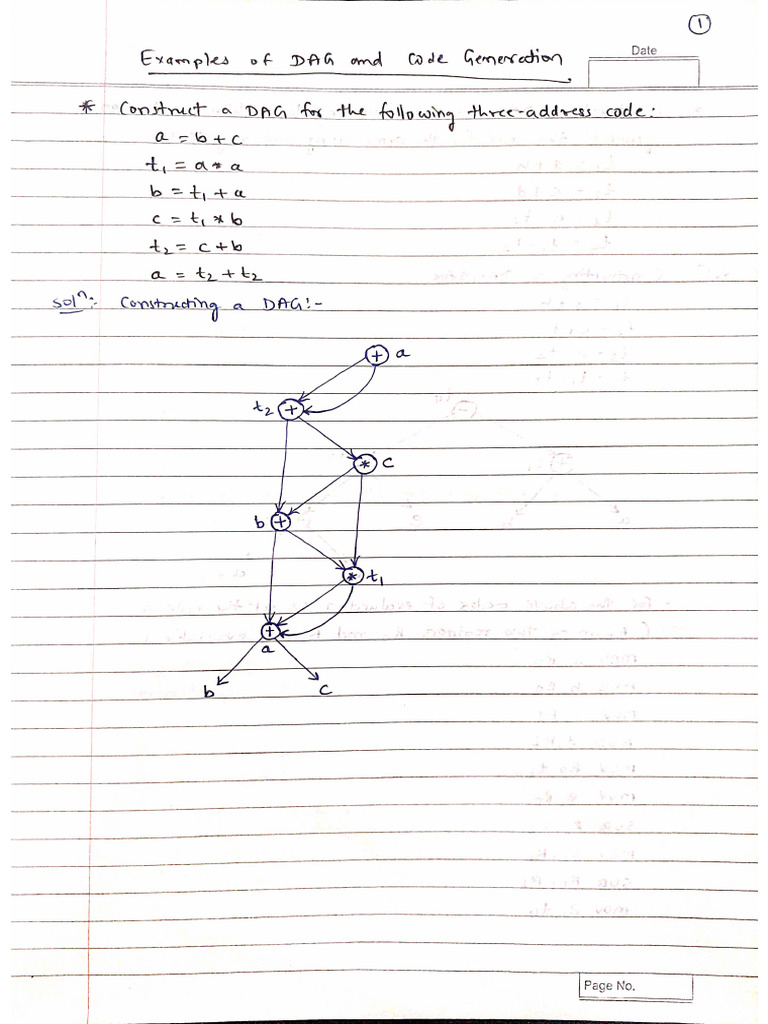 1
Examples of DAG and Code Generation
Date
* Construct a DAG for the following three-address code:
a = b + c
t₁ = a * a
b = t₁ + a
c = t₁ * b
t₂ = c + b
a = t₂ + t₂
Solⁿ:- Constructing a DAG:-
+ a
t₂ +
* c
b +
* t₁
+
a
b c
Page No.